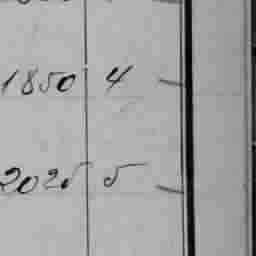 1850 4 —
2025 5 —